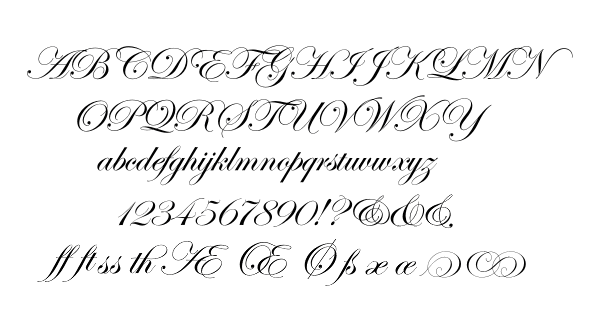 ABCDEFGHIJKLMN
OPQRSTUVWXY
abcdefghijklmnopqrstuvwxyz
1234567890!?&&&
ff ft ss th Æ Œ Ø ß æ œ